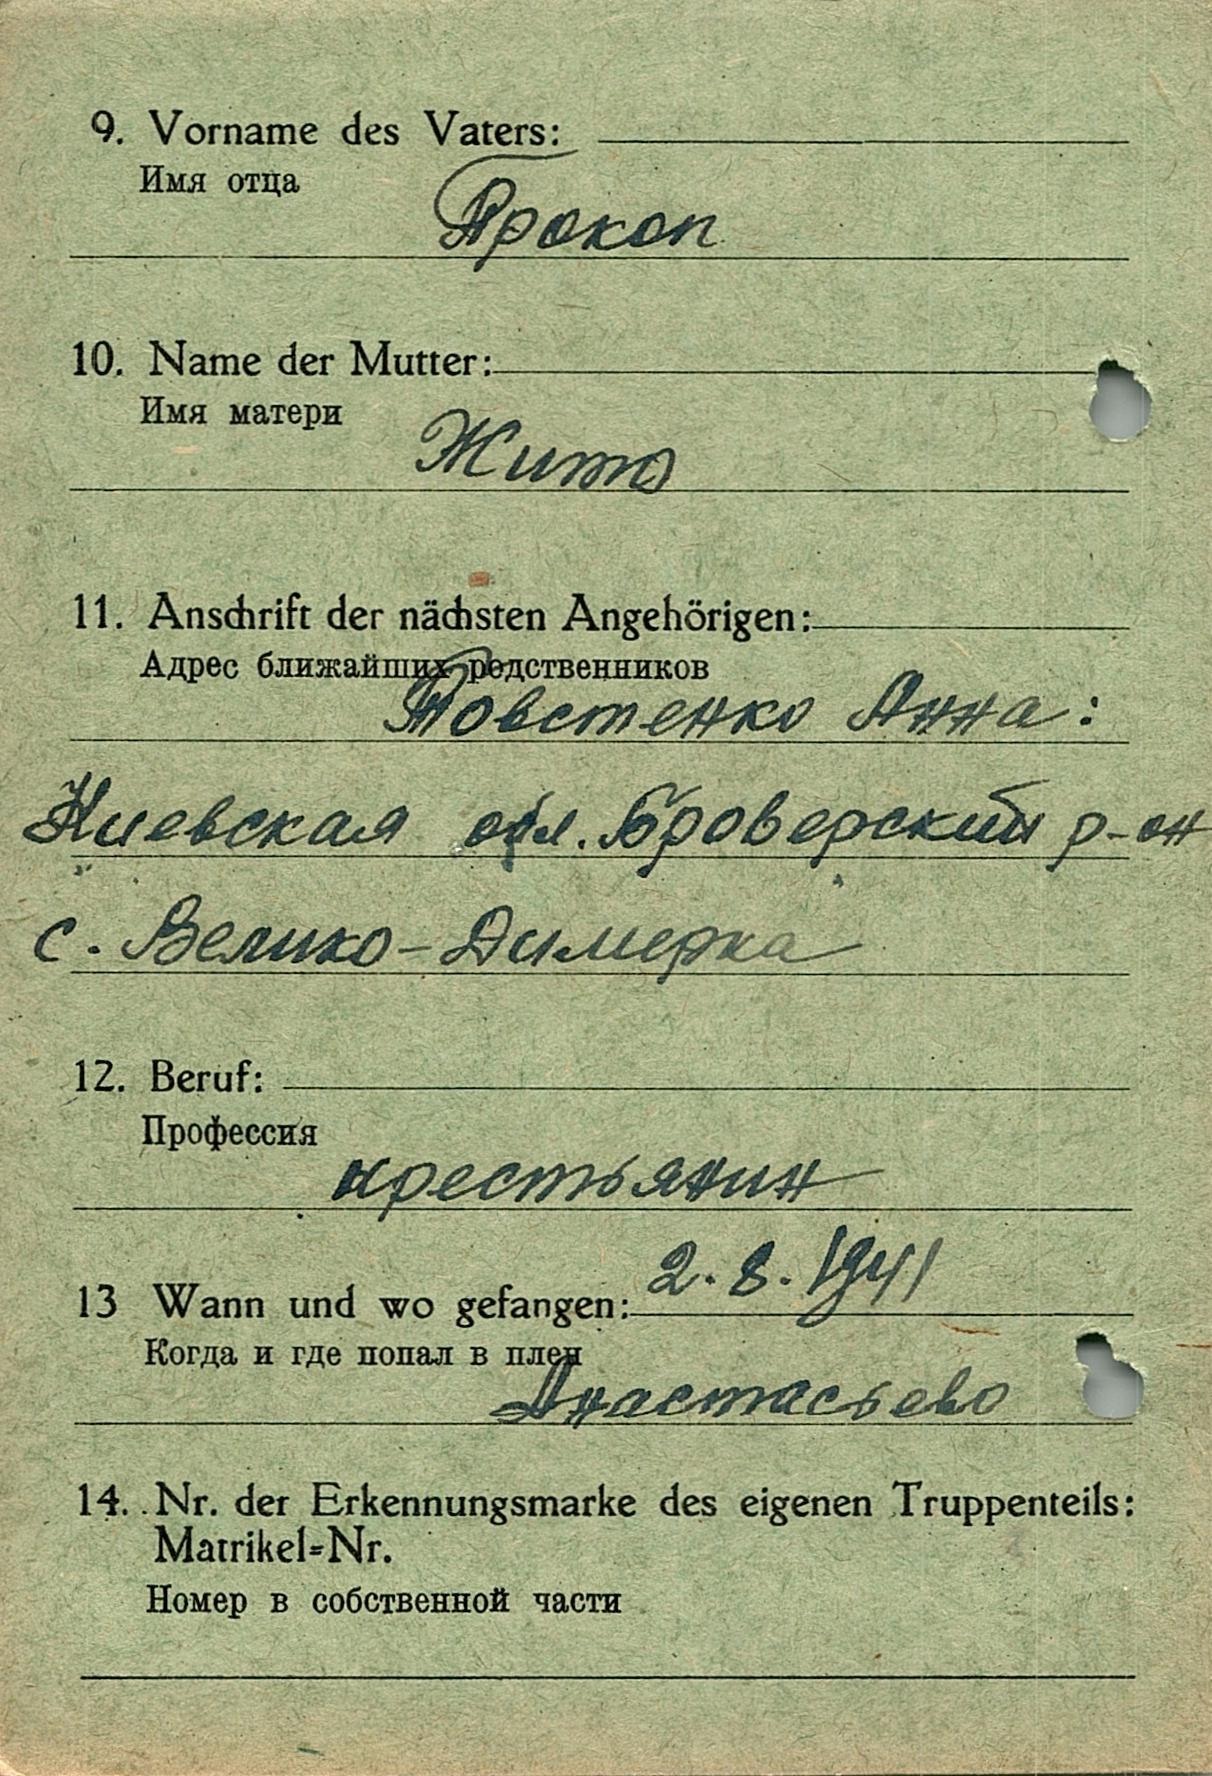 9. Vorname des Vaters:
Имя отца
Прокоп
10. Name der Mutter:
Имя матери
Жито
11. Anschrift der nächsten Angehörigen:
Адрес ближайших родственников
Товстенко Анна:
Киевская обл. Броверский р-он
с. Велико-Димерка
12. Beruf:
Профессия
крестьянин
2.8.1941
13 Wann und wo gefangen:
Когда и где попал в плен
Анастасьево
14. Nr. der Erkennungsmarke des eigenen Truppenteils:
Matrikel=Nr.
Номер в собственной части